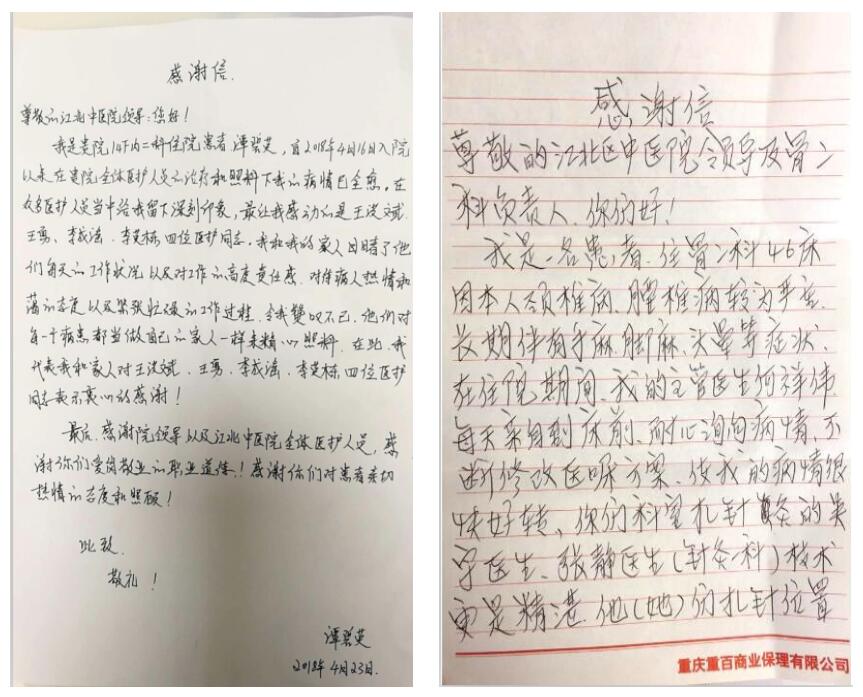 感谢信
尊敬的江北中医院领导:您好!
我是贵院14F内二科住院患者谭碧英,自2018年4月16日入院
以来在贵院全体医护人员的治疗和照料下我的病情已全愈,在
众多医护人员当中给我留下深刻印象,最让我感动的是王
王勇、李 四位医护同志,我和我的家人目睹了他
们每天的工作状况以及对工作的高度责任感,对待病人热情和
蔼的态度以及紧张忙碌的工作过程,令我赞叹不已,他们对
每一个病患都当做自己的家人一样来精心照料,在此,我
代表我和家人对王 、王勇、李 四位医护
同志表示衷心的感谢!
最后,感谢院领导以及江北中医院全体医护人员,感
谢你们爱岗敬业的职业道德!感谢你们对患者亲切
热情的态度和照顾!
此致
敬礼!
谭碧英
2018年4月23日.
感谢信
尊敬的江北区中医院领导及骨二
科负责人,你们好!
我是一名患者,住骨二科46床
因本人颈椎病、腰椎病较为严重,
长期伴有手麻、脚麻、头晕等症状,
在住院期间,我的主管医生何祥伟
每天亲自到床前,耐心询问病情,不
断修改医嘱方案,使我的病情很
快好转,你们科室扎针灸的吴
宇医生、张静医生(针灸科)技术
更是精湛,他(她)们扎针位置
重庆重百商业保理有限公司